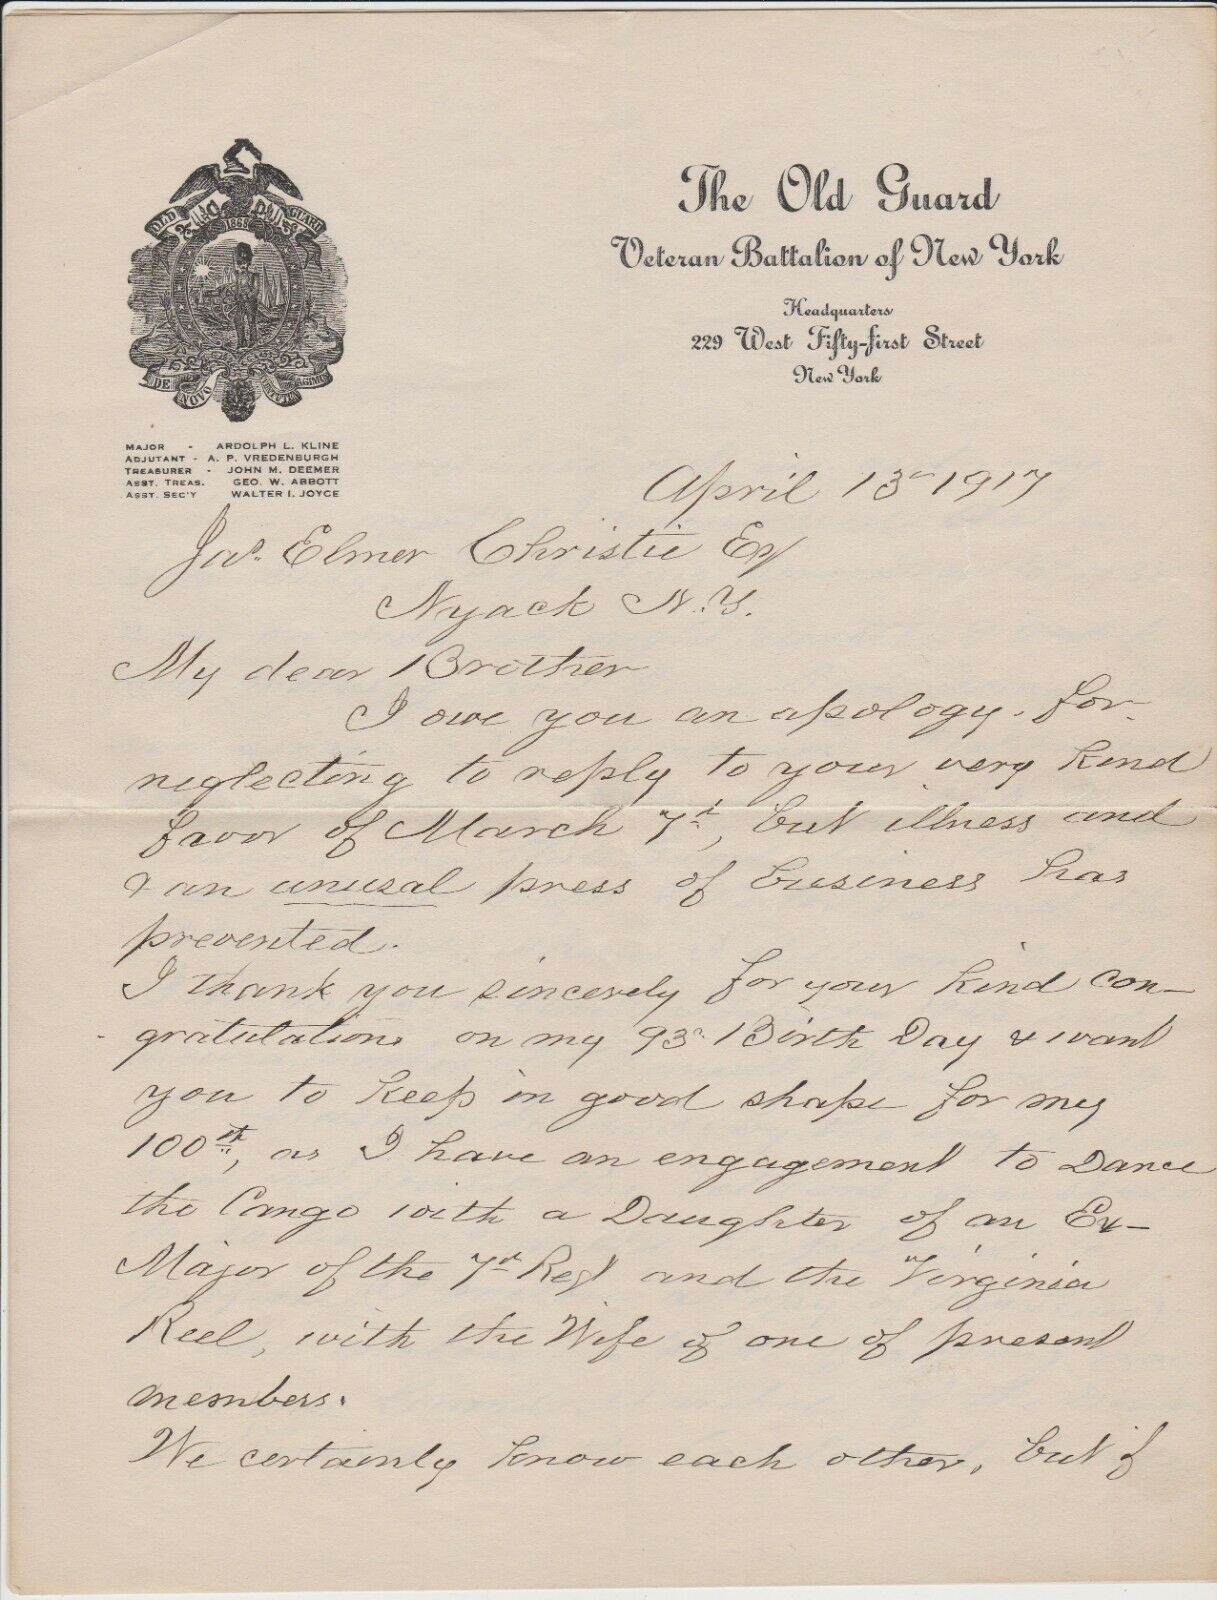 OLD GUARD
1868
DE NOVO
The Old Guard
Veteran Battalion of New York
Headquarters
229 West Fifty-first Street
New York
MAJOR - ARDOLPH L. KLINE
ADJUTANT - A. P. VREDENBURGH
TREASURER - JOHN M. DEEMER
ASST. TREAS. GEO. W. ABBOTT
ASST. SEC'Y WALTER I. JOYCE
April 13" 1917
Jas. Elmer Christie Esq
Nyack N.Y.
My dear Brother
I owe you an apology. for
neglecting to reply to your very kind
favor of March 7th, but illness and
& an unusal press of business has
prevented.
I thank you sincerely for your kind con-
gratulations on my 93" Birth Day & want
you to keep in good shape for my
100th, as I have an engagement to Dance
the Cango with a Daughter of an Ex-
Major of the 7th Regt and the Virginia
Reel, with the Wife of one of present
members.
We certainly know each other, but if